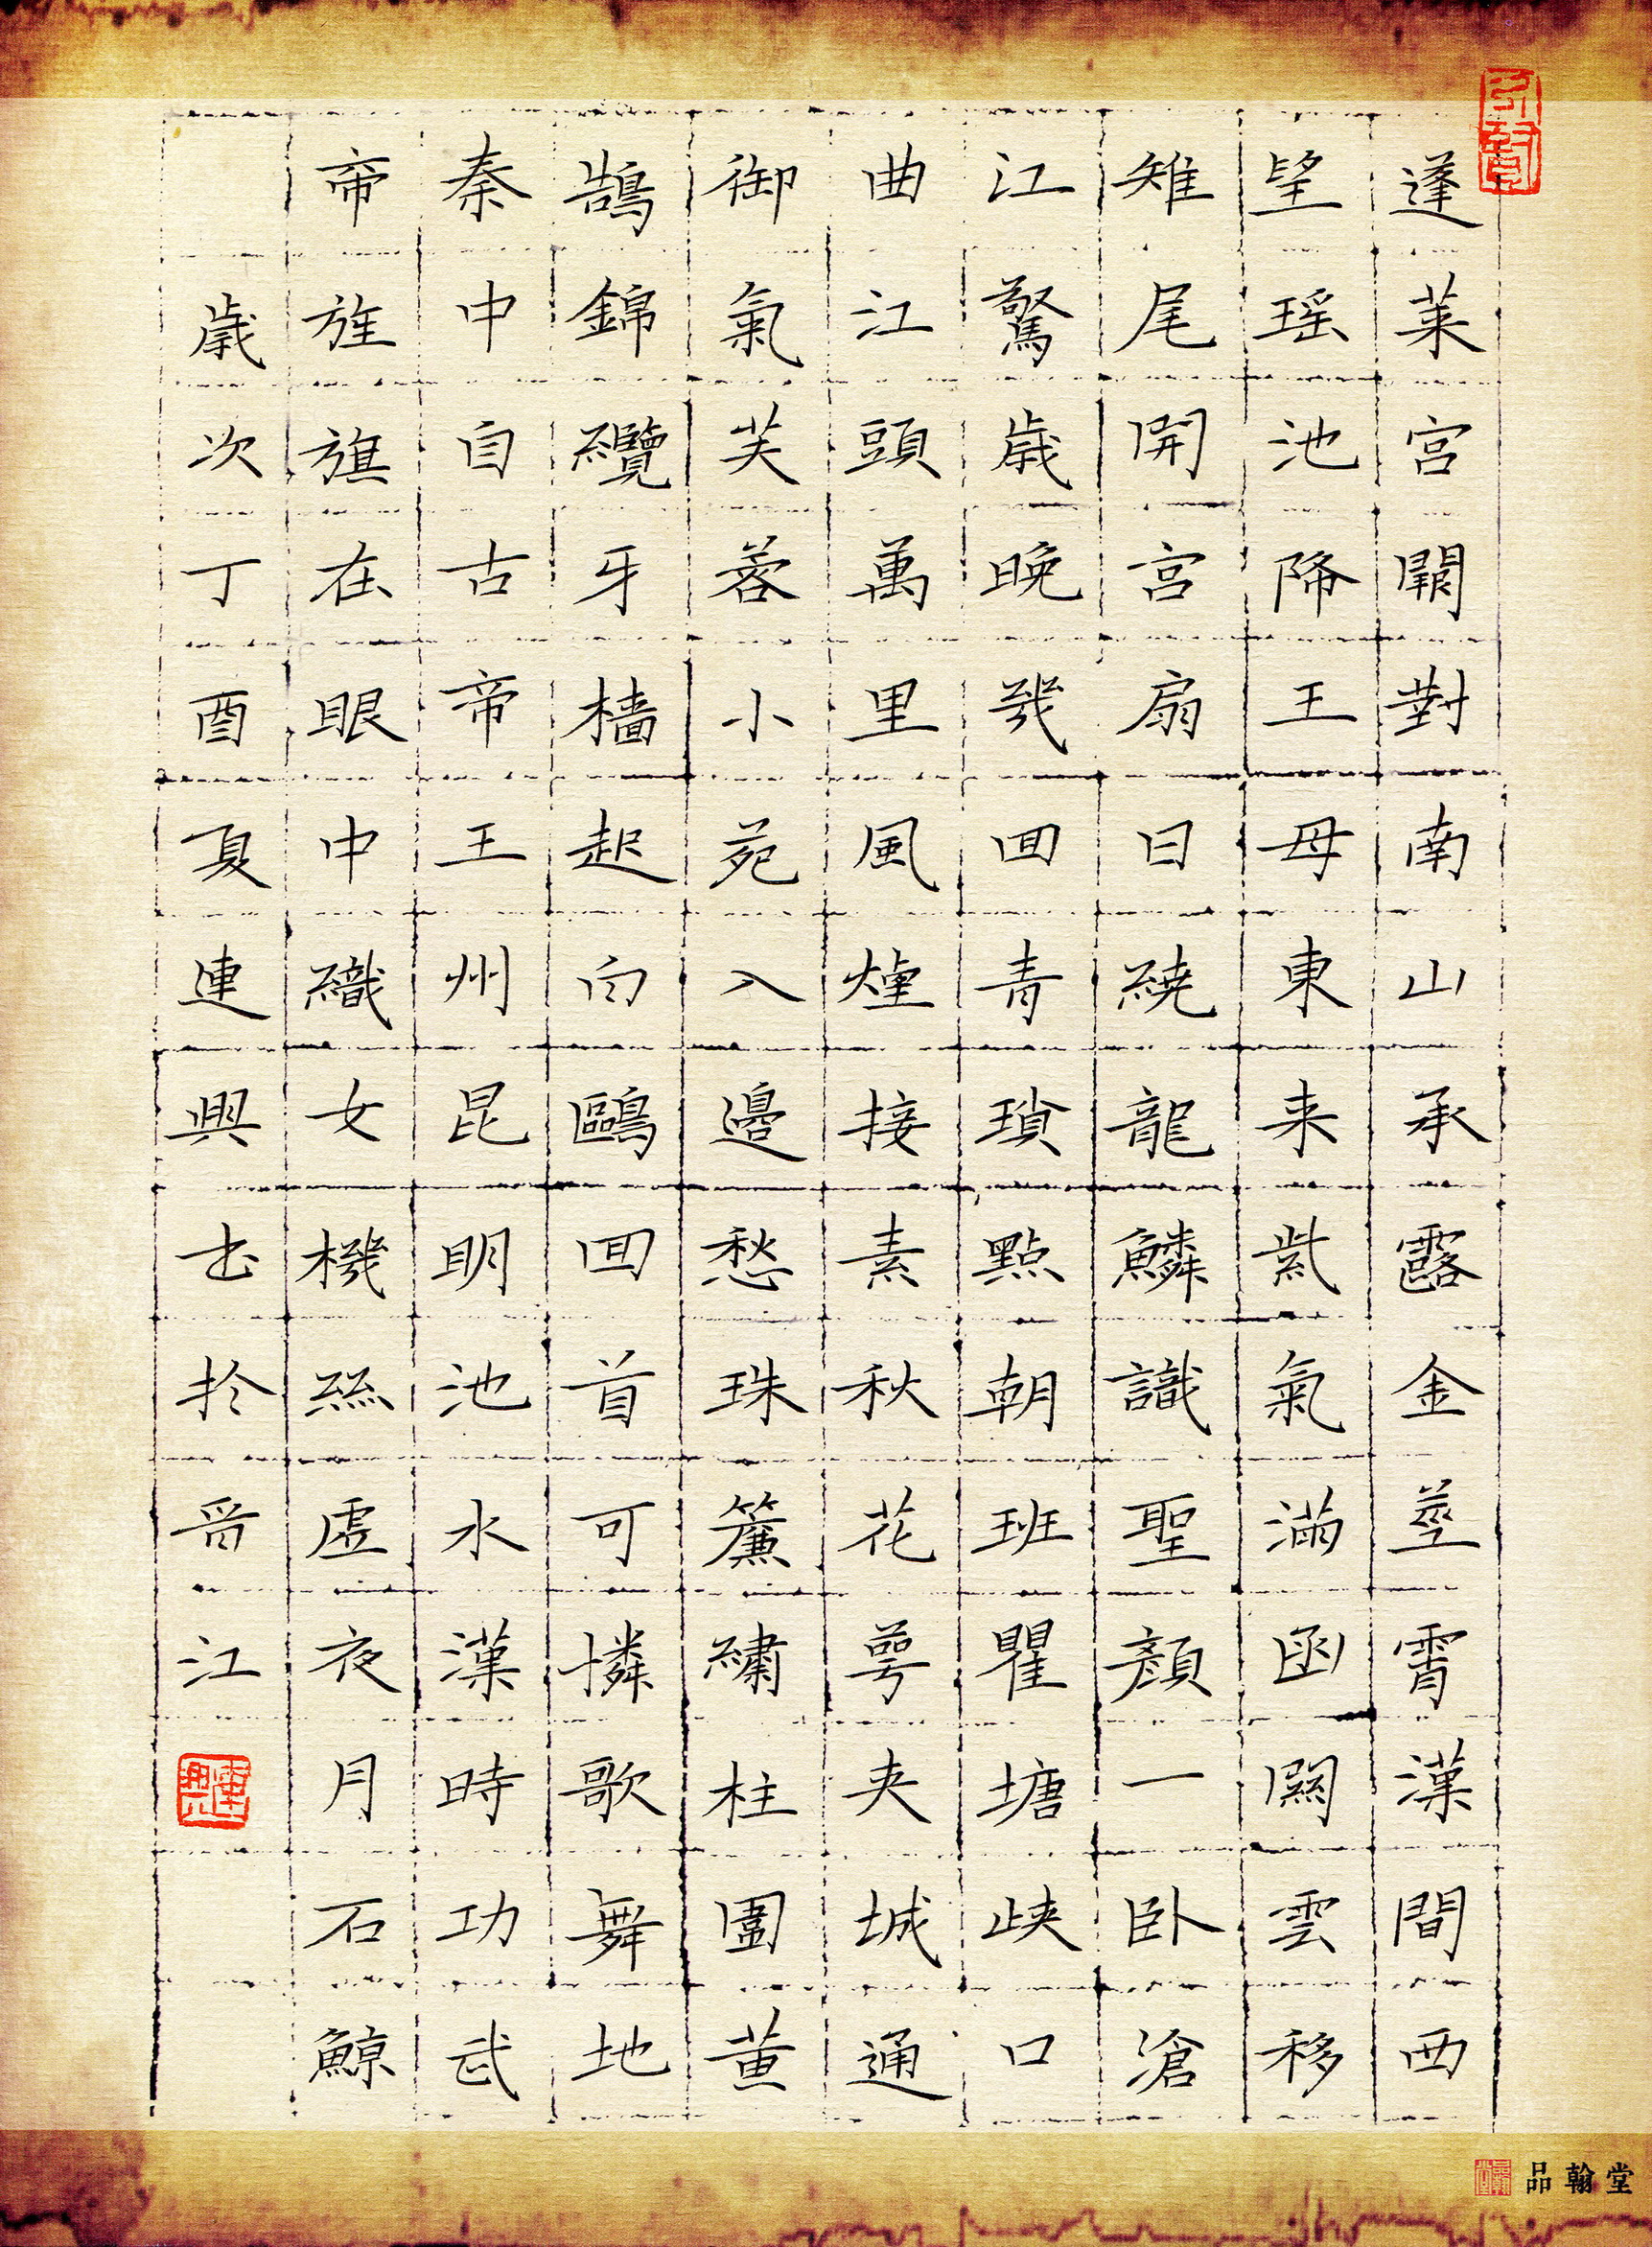 蓬萊宮闕對南山承露金莖霄漢間西
望瑶池降王母東来紫氣滿函關雲移
雉尾開宮扇日繞龍鱗識聖顔一卧滄
江驚歲晚幾回青瑣點朝班瞿塘峽口
曲江頭萬里風煙接素秋花萼夾城通
御氣芙蓉小苑入邊愁珠簾繡柱圍黄
鵠錦纜牙檣起白鷗回首可憐歌舞地
秦中自古帝王州昆明池水漢時功武
帝旌旗在眼中織女機絲虛夜月石鯨
歲次丁酉夏連興書於晉江
連興
品翰堂